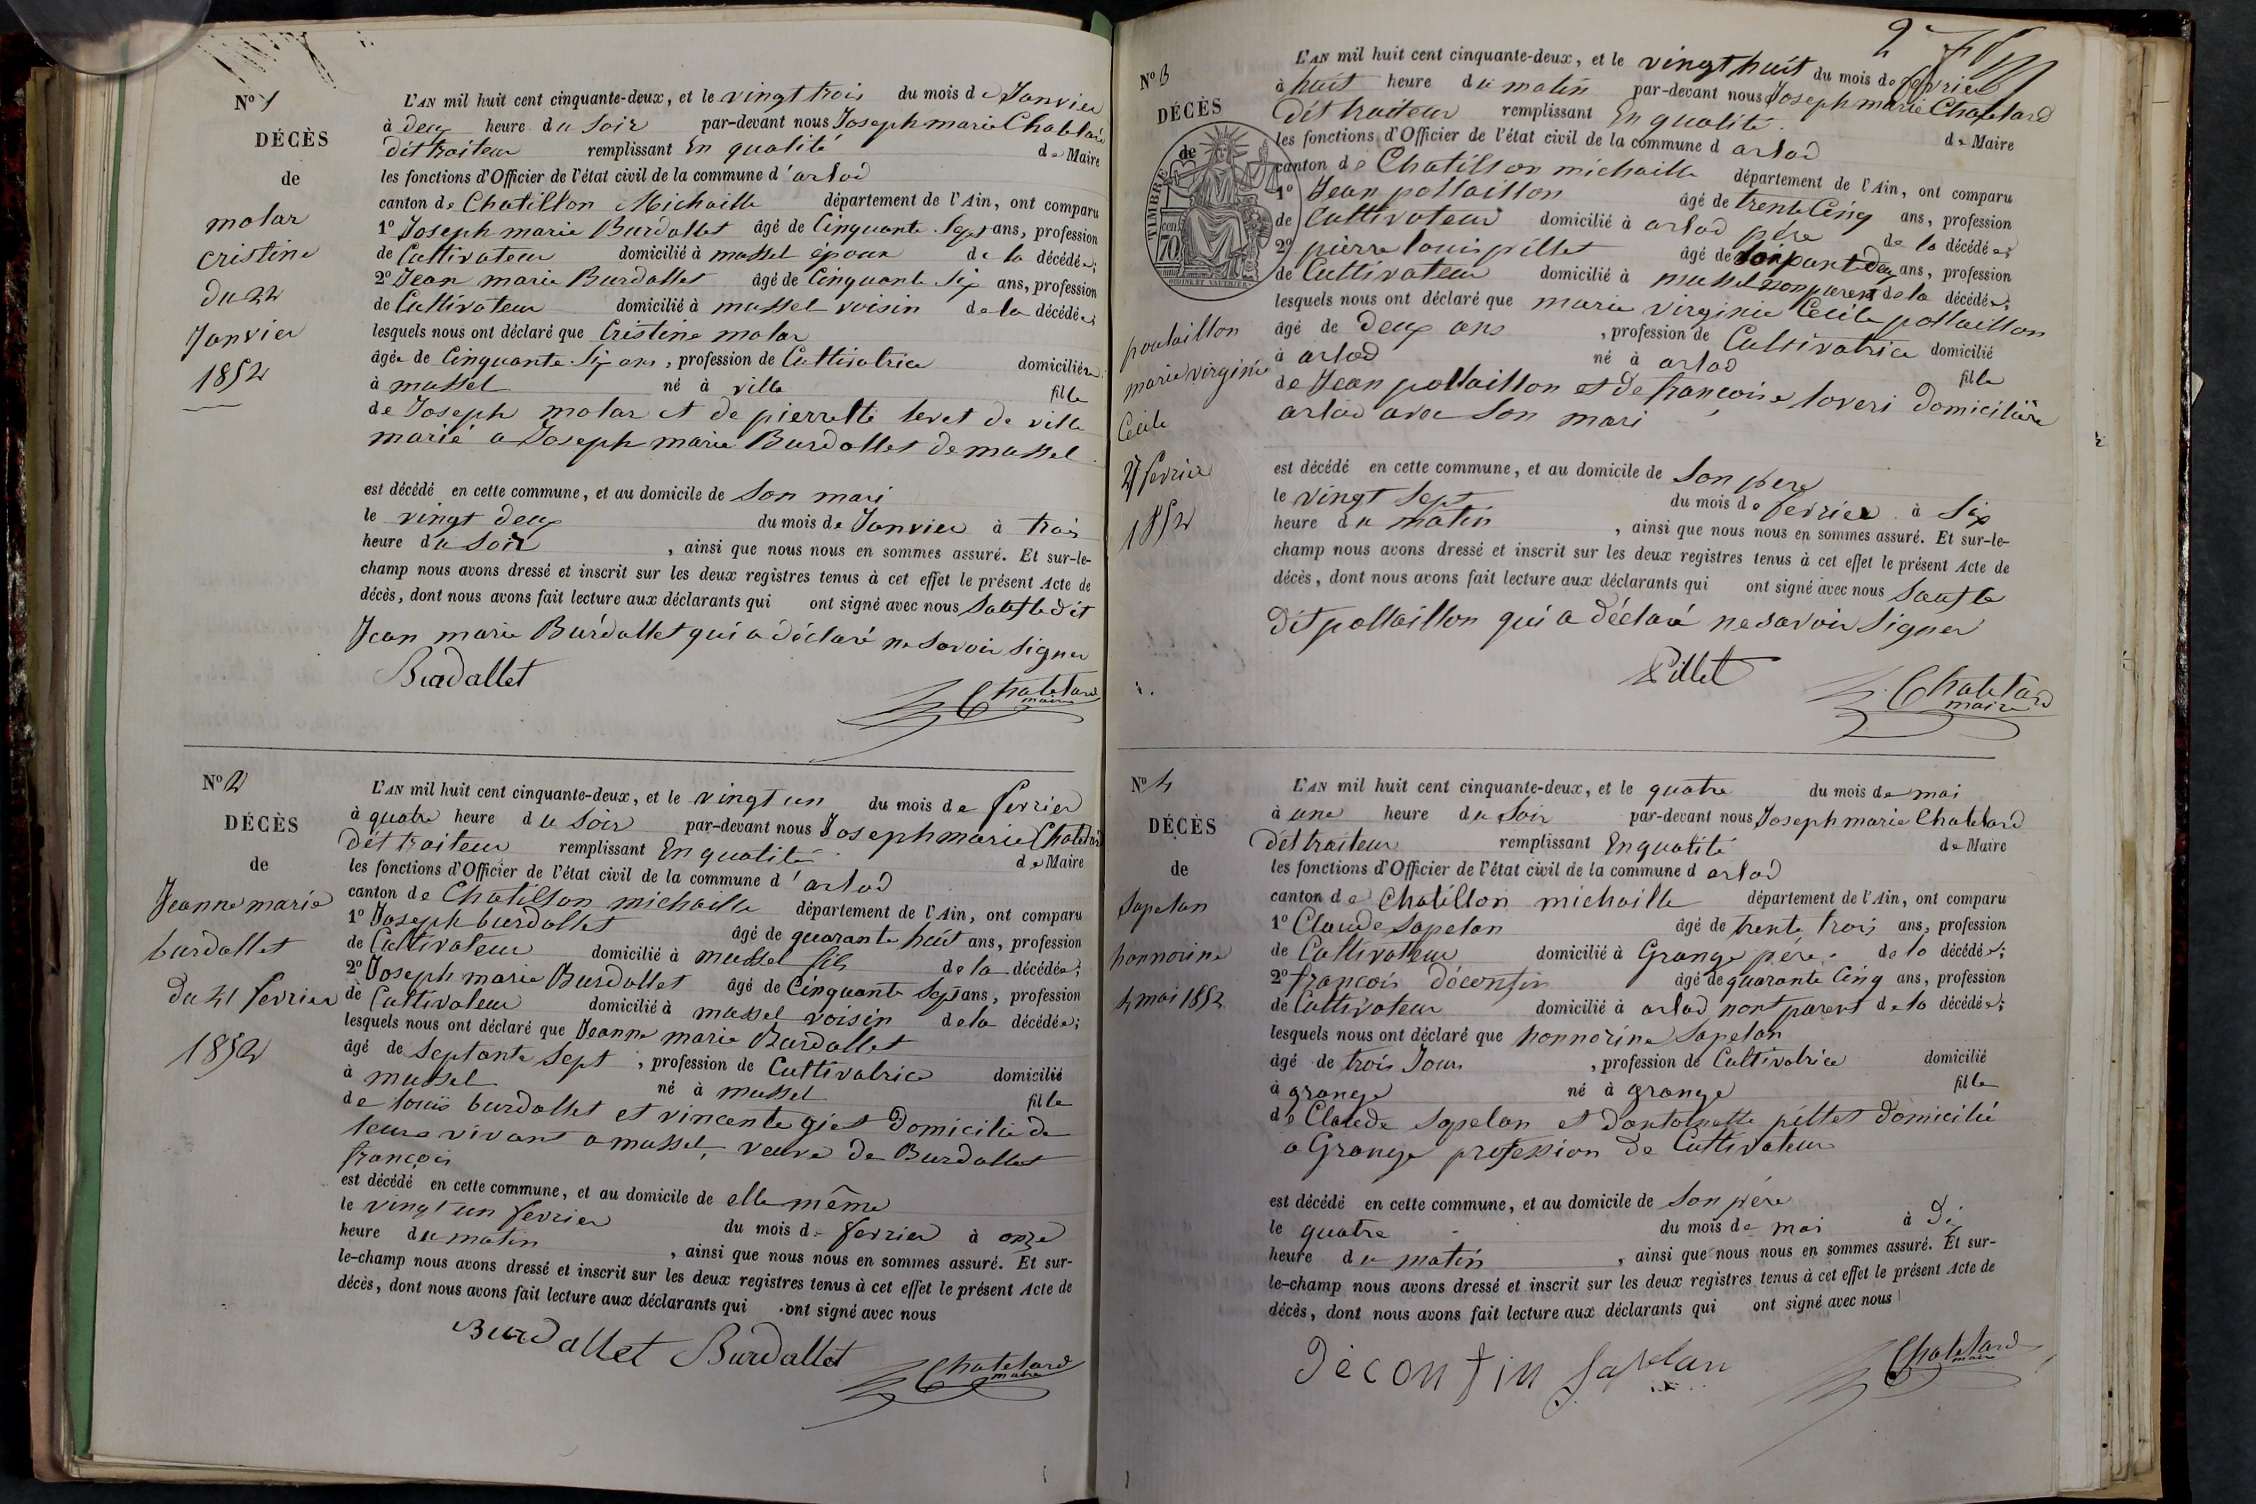 N° 1
DÉCÈS
de
molar
cristine
du 22
Janvier
1852
L'AN mil huit cent cinquante-deux, et le vingt trois du mois de Janvier
à deux heure du soir par-devant nous Joseph marie Chatelard
dit traiteur remplissant En qualité de Maire
les fonctions d'Officier de l'état civil de la commune d'arlod
canton de Chatillon Michaille département de l'Ain, ont comparu
1° Joseph marie Burdallet âgé de Cinquante Sept ans, profession
de Cultivateur domicilié à mussel époux de la décédée;
2° Jean marie Burdallet âgé de Cinquante Six ans, profession
de Cultivateur domicilié à mussel voisin de la décédée;
lesquels nous ont déclaré que Cristine molar
âgée de Cinquante Six ans, profession de Cultivatrice domiciliée
à mussel né à ville fille
de Joseph molar et de pierrette levet de ville
marié a Joseph marie Burdallet de mussel
est décédé en cette commune, et au domicile de son mari
le vingt deux du mois de Janvier à trois
heure du soir, ainsi que nous nous en sommes assuré. Et sur-le-
champ nous avons dressé et inscrit sur les deux registres tenus à cet effet le présent Acte de
décès, dont nous avons fait lecture aux déclarants qui ont signé avec nous Sauf le dit
Jean marie Burdallet qui a déclaré ne savoir signer
Burdallet
Chatelard
maire
N° 2
DÉCÈS
de
Jeanne marie
burdallet
du 21 fevrier
1852
L'AN mil huit cent cinquante-deux, et le vingt un du mois de fevrier
à quatre heure du soir par-devant nous Joseph marie Chatelard
dit traiteur remplissant En qualité de Maire
les fonctions d'Officier de l'état civil de la commune d'arlod
canton de Chatillon michaille département de l'Ain, ont comparu
1° Joseph burdallet âgé de quarante huit ans, profession
de Cultivateur domicilié à mussel fils de la décédée;
2° Joseph marie Burdallet âgé de Cinquante Sept ans, profession
de Cultivateur domicilié à mussel voisin de la décédée;
lesquels nous ont déclaré que Jeanne marie Burdallet
âgé de septante sept, profession de Cultivatrice domicilié
à mussel né à mussel fille
de louis burdallet et vincente giet Domicilié de
leurs vivant a mussel, veuve de Burdallet
françois
est décédé en cette commune, et au domicile de elle même
le vingt un fevrier du mois de fevrier à onze
heure du matin, ainsi que nous nous en sommes assuré. Et sur-
le-champ nous avons dressé et inscrit sur les deux registres tenus à cet effet le présent Acte de
décès, dont nous avons fait lecture aux déclarants qui ont signé avec nous
Burdallet Burdallet
Chatelard
maire
2
N° 3
DÉCÈS
de
TIMBRE
70
poulaillon
marie virginie
Cécile
27 fevrier
1852
L'AN mil huit cent cinquante-deux, et le vingt huit du mois de fevrier
à huit heure du matin par-devant nous Joseph marie Chatelard
dit traiteur remplissant En qualité de Maire
les fonctions d'Officier de l'état civil de la commune d arlod
canton de Chatillon michaille département de l'Ain, ont comparu
1° Jean pollaillon âgé de trente Cinq ans, profession
de Cultivateur domicilié à arlod père de la décédée;
2° pierre louis pillet âgé de ans, profession
de Cultivateur domicilié à mussel non parent de la décédée;
lesquels nous ont déclaré que marie virginie Cécile pollaillon
âgé de deux ans, profession de Cultivatrice domicilié
à arlod né à arlod fille
de Jean pollaillon et de françoise loveri domicilière
arlod avec son mari
est décédé en cette commune, et au domicile de Son père
le vingt sept du mois de fevrier à Six
heure du matin, ainsi que nous nous en sommes assuré. Et sur-le-
champ nous avons dressé et inscrit sur les deux registres tenus à cet effet le présent Acte de
décès, dont nous avons fait lecture aux déclarants qui ont signé avec nous Sauf le
dit pollaillon qui a déclaré ne savoir signer
Pillet
Chatelard
maire
N° 4
DÉCÈS
de
Sapelan
honnorine
4 mai 1852
L'AN mil huit cent cinquante-deux, et le quatre du mois de mai
à une heure du soir par-devant nous Joseph marie Chatelard
dit traiteur remplissant En qualité de Maire
les fonctions d'Officier de l'état civil de la commune d arlod
canton de Chatillon michaille département de l'Ain, ont comparu
1° Claude Sapelan âgé de trente trois ans, profession
de Cultivateur domicilié à Grange père de la décédée;
2° françois décontin âgé de quarante Cinq ans, profession
de Cultivateur domicilié à arlod nont parent de la décédée;
lesquels nous ont déclaré que honnorine Sapelan
âgé de trois Jours, profession de Cultivatrice domicilié
à grange né à grange fille
de Claude Sapelan et dantoinette pillet domicilié
a Grange profession de Cultivateur
est décédé en cette commune, et au domicile de Son père
le quatre du mois de mai à Dix
heure du matin, ainsi que nous nous en sommes assuré. Et sur-
le-champ nous avons dressé et inscrit sur les deux registres tenus à cet effet le présent Acte de
décès, dont nous avons fait lecture aux déclarants qui ont signé avec nous
Décontin Saplan
Chatelard
maire